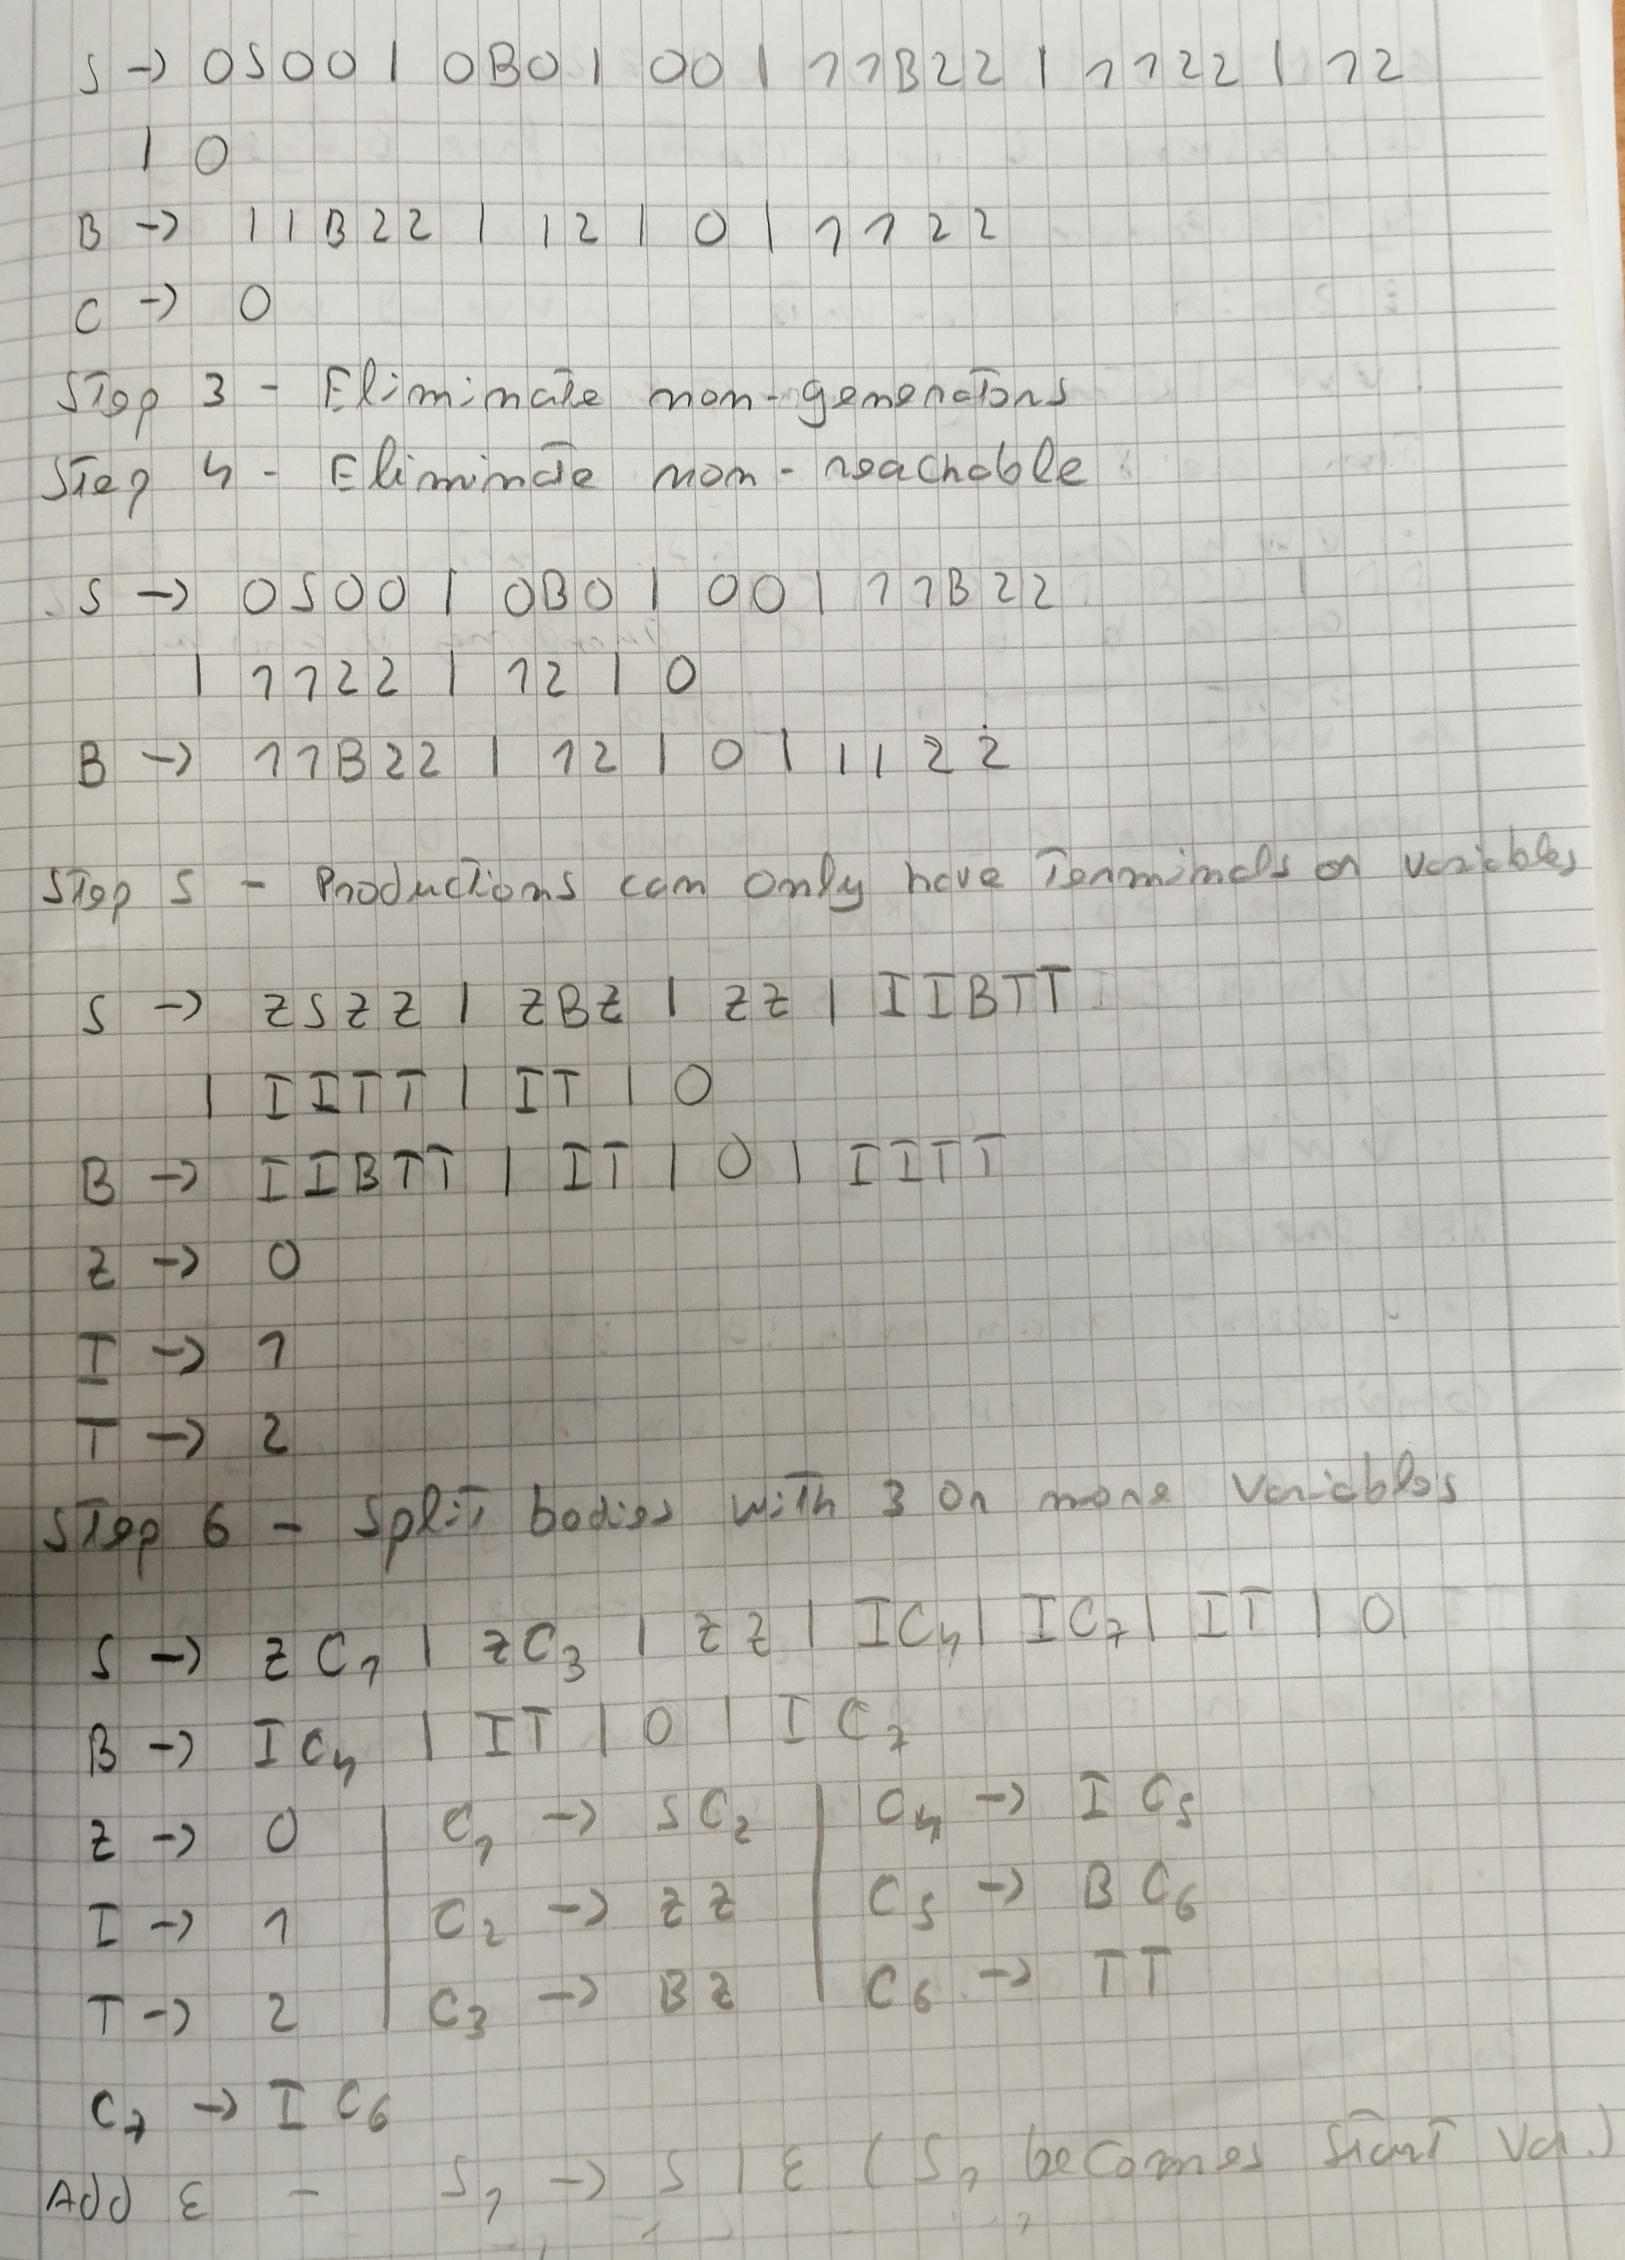 S → 0S00 | 0B0 | 00 | 11B22 | 1122 | 12
| 0
B → 11B22 | 12 | 0 | 1122
C → 0
Step 3 - Eliminate non-generators
Step 4 - Eliminate non-reachable
S → 0S00 | 0B0 | 00 | 11B22
| 1122 | 12 | 0
B → 11B22 | 12 | 0 | 1122
Step 5 - Productions can only have terminals or variables
S → ZSZZ | ZBZ | ZZ | IIBTT
| IITT | IT | 0
B → IIBTT | IT | 0 | IITT
Z → 0
I → 1
T → 2
Step 6 - Split bodies with 3 or more variables
S → ZC₁ | ZC₃ | ZZ | IC₄ | IC₇ | IT | 0
B → IC₄ | IT | 0 | IC₇
Z → 0 | C₁ → SC₂ | C₄ → IC₅
I → 1 | C₂ → ZZ | C₅ → BC₆
T → 2 | C₃ → BZ | C₆ → TT
C₇ → IC₆
Add ε - S₁ → S | ε (S₁ becomes start var.)